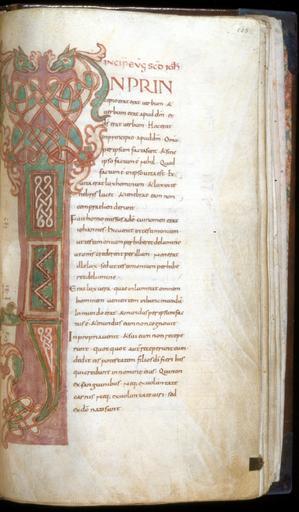 INCIPIT EVG SCD IOH
IN PRIN
cipio erat uerbum &
uerbum erat apud dm̄ et
ds̄ erat uerbum. Hoc erat
in principio apud dm̄. Omia
per ipsum facta sunt. & sine
ipso factum ē nihil. Quod
factum ē in ipso uita est. &
uita erat lux hominum & lux in te
nebris lucet & tenebrae eam non
comprehenderunt
Fuit homo missus a dō cui nomen erat
iohannes. Hic uenit in testimonium
ut testimonium perhiberet de lumine
ut omnes crederent per illum. Non erat
ille lux. sed ut testimonium perhibe
ret de lumine.
Erat lux uera quae inluminat omnem
hominem uenientem in hunc mundū
In mundo erat & mundus per ipsum fac
tus ē & mundus eum non cognouit
In propria uenit & sui eum non recepe
runt. quotquot aut receperunt eum
dedit eis potestatem filios dī fieri his
qui credunt in nomine eius. Qui non
ex sanguinibus neq; ex uoluntate
carnis neq; ex uoluntate uiri. sed
ex dō nati sunt